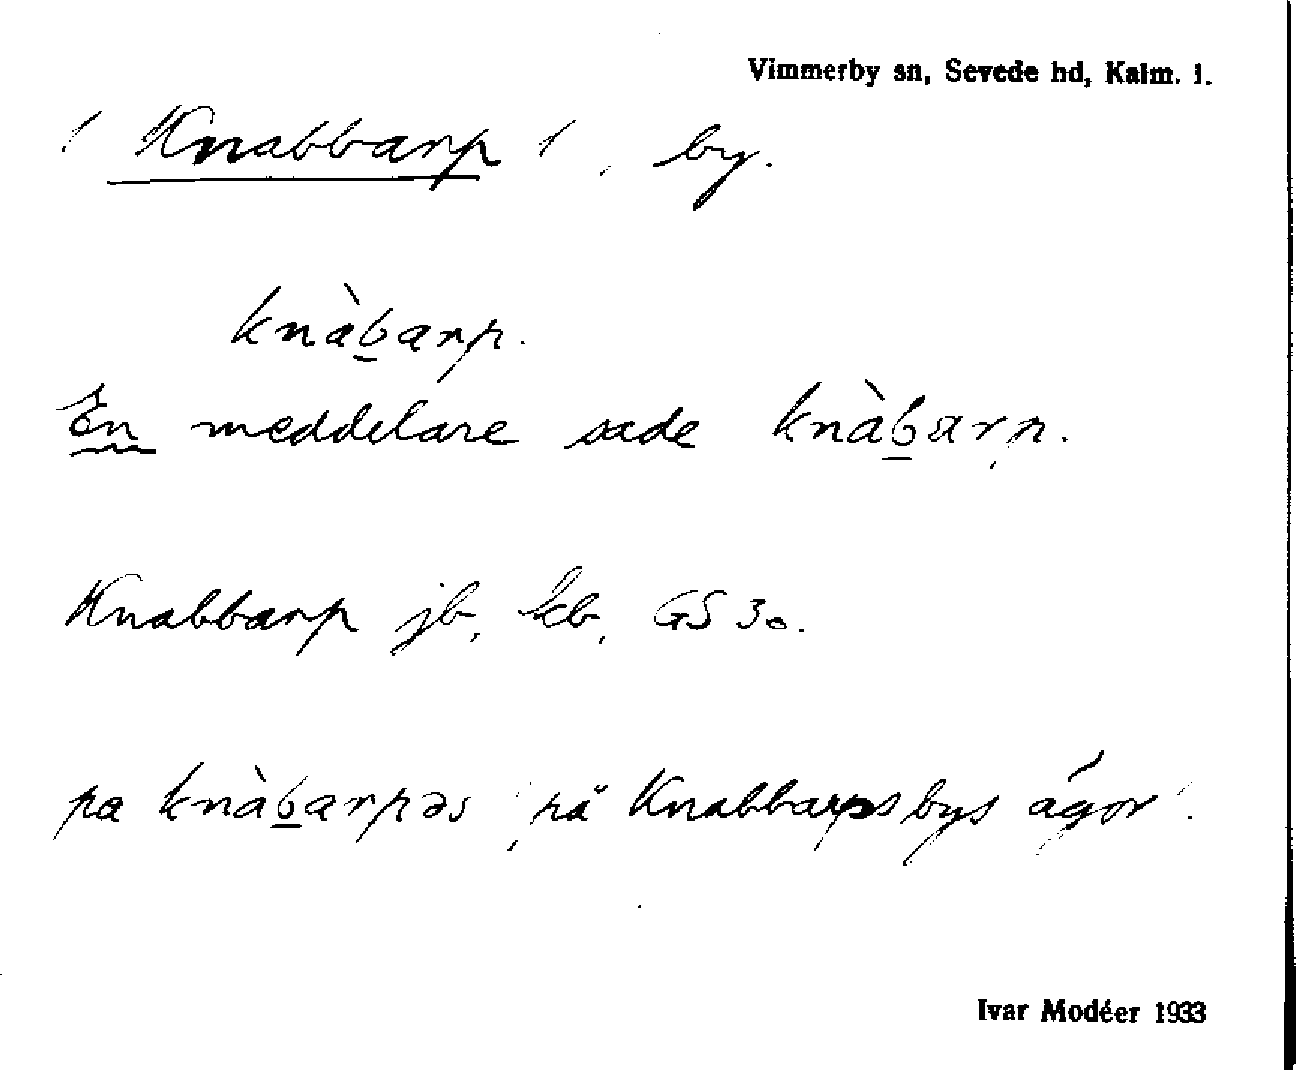 Vimmerby sn, Sevede hd, Kalm. l.
( Knabbarp ) , by.
knàb̲arp.
En meddelare sade knàb̲arp.
Knabbarp jb, kb, GS 30.
pa knàb̲arpəs 'på Knabbarpsbys ägor'.
Ivar Modéer 1933